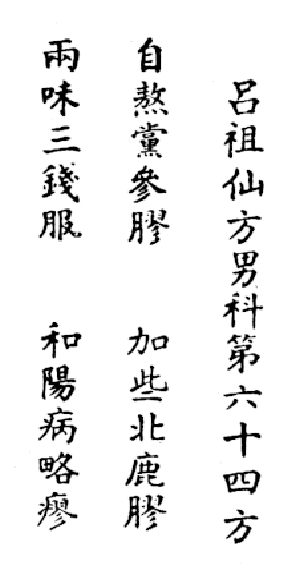 呂祖仙方男科第六十四方
自熬黨參膠 加些北鹿膠
兩味三錢服 和陽病略瘳